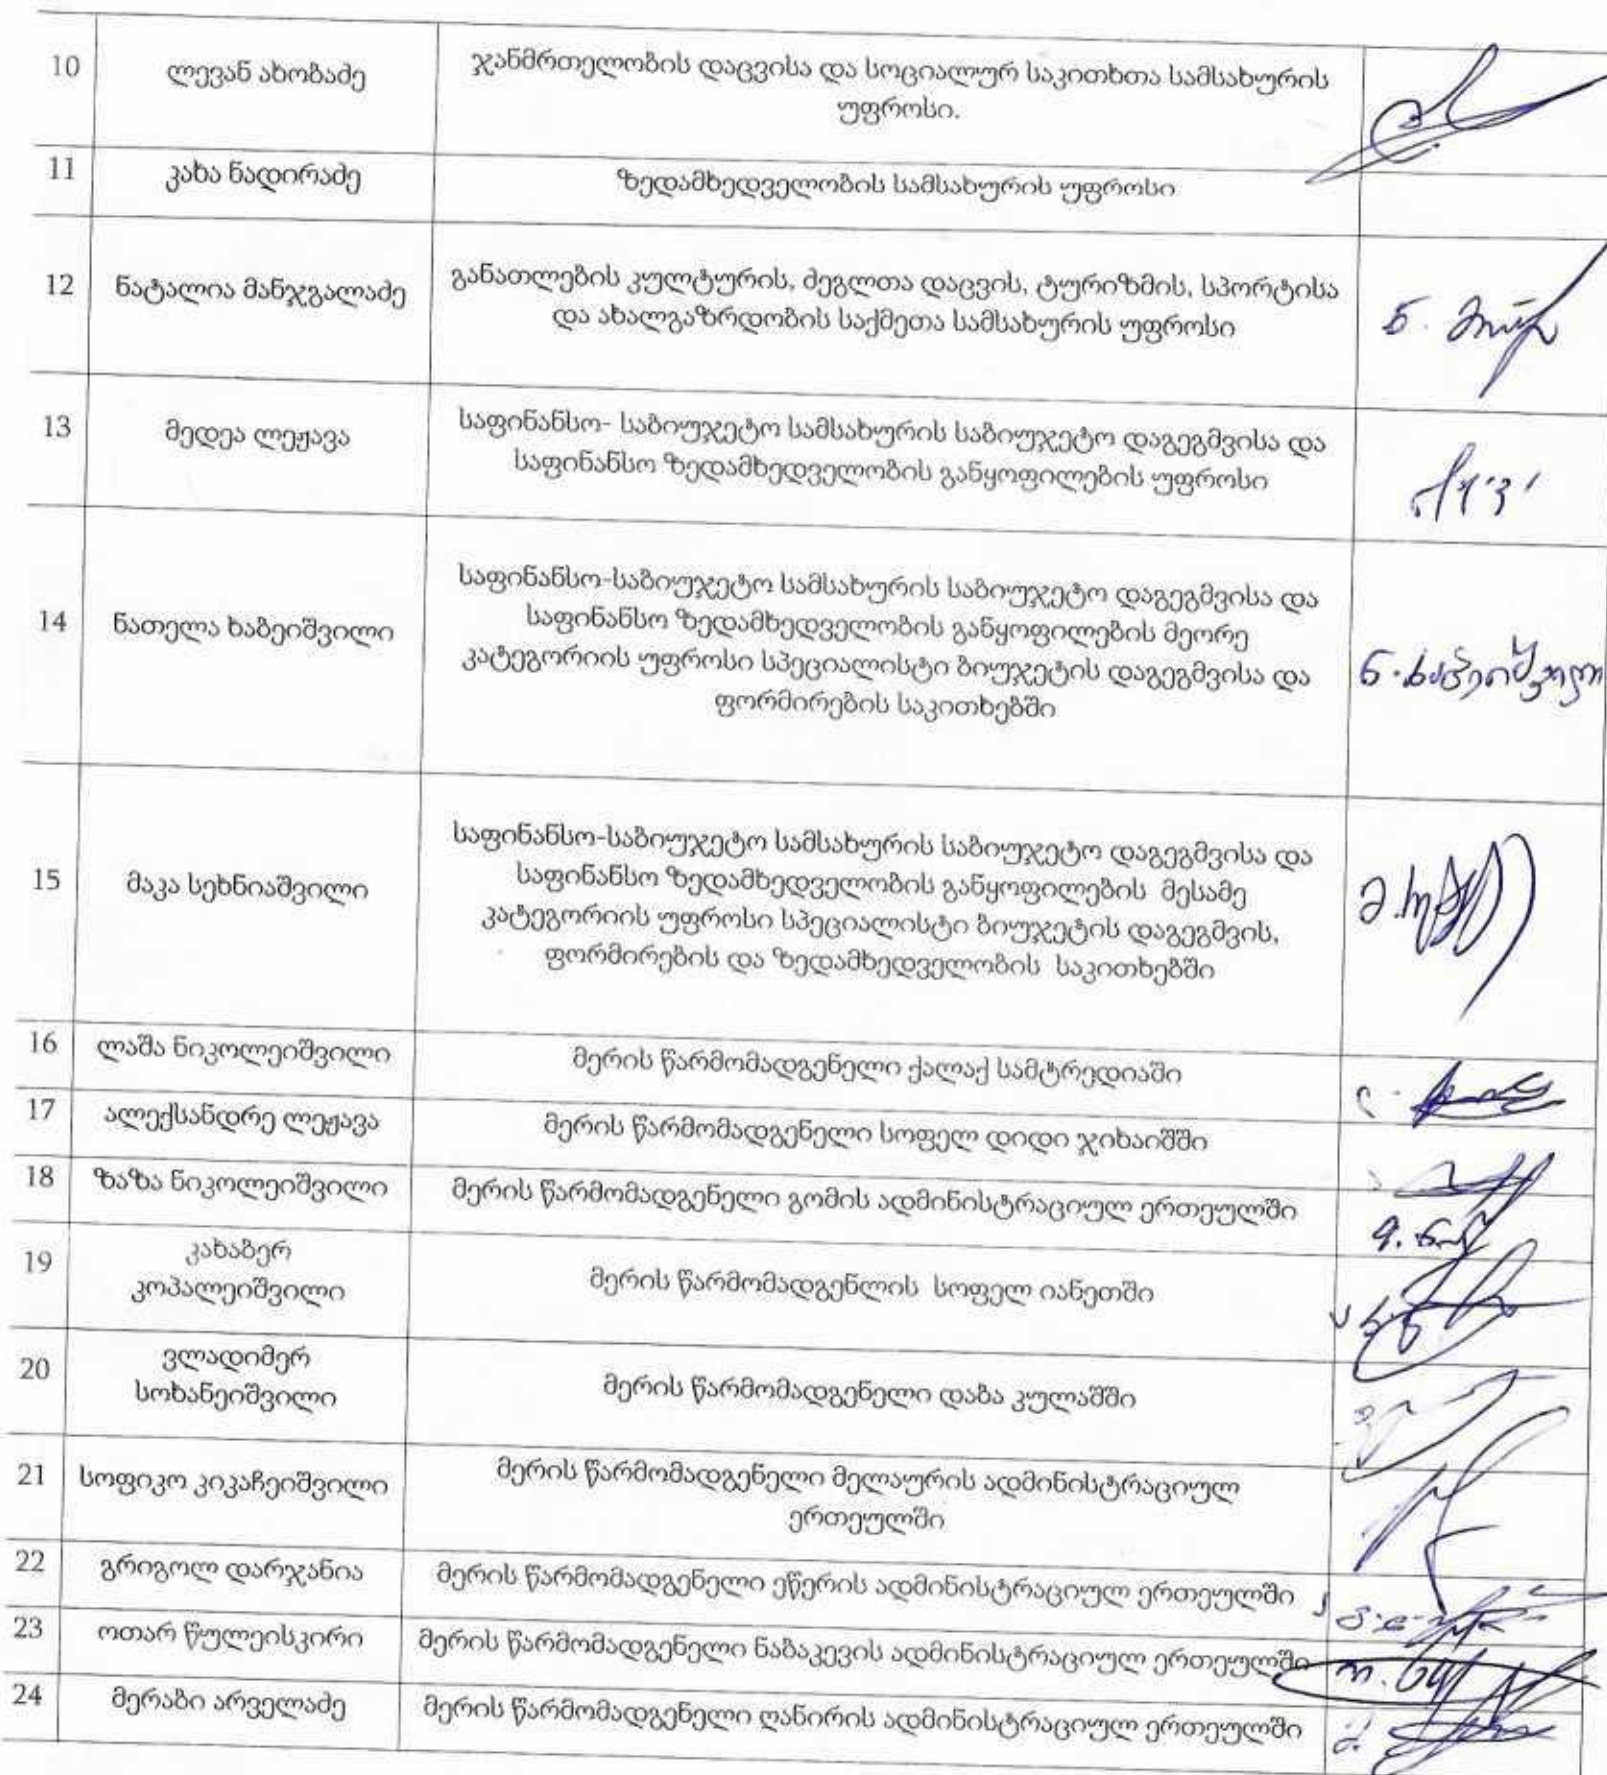 10 ლევან ახობაძე ჯანმრთელობის დაცვისა და სოციალურ საკითხთა სამსახურის
უფროსი.
11 კახა ნადირაძე ზედამხედველობის სამსახურის უფროსი
12 ნატალია მანჯგალაძე განათლების კულტურის, ძეგლთა დაცვის, ტურიზმის, სპორტისა
და ახალგაზრდობის საქმეთა სამსახურის უფროსი
ნ.
13 მედეა ლეჟავა საფინანსო- საბიუჯეტო სამსახურის საბიუჯეტო დაგეგმვისა და
საფინანსო ზედამხედველობის განყოფილების უფროსი
საფინანსო-საბიუჯეტო სამსახურის საბიუჯეტო დაგეგმვისა და
14 ნათელა ხაბეიშვილი საფინანსო ზედამხედველობის განყოფილების მეორე
კატეგორიის უფროსი სპეციალისტი ბიუჯეტის დაგეგმვისა და
ფორმირების საკითხებში
ნ. ხაბეიშვილი
საფინანსო-საბიუჯეტო სამსახურის საბიუჯეტო დაგეგმვისა და
15 მაკა სეხნიაშვილი საფინანსო ზედამხედველობის განყოფილების მესამე
კატეგორიის უფროსი სპეციალისტი ბიუჯეტის დაგეგმვის,
ფორმირების და ზედამხედველობის საკითხებში
მ.
16 ლაშა ნიკოლეიშვილი მერის წარმომადგენელი ქალაქ სამტრედიაში
17 ალექსანდრე ლეჟავა მერის წარმომადგენელი სოფელ დიდი ჯიხაიშში
18 ზაზა ნიკოლეიშვილი მერის წარმომადგენელი გომის ადმინისტრაციულ ერთეულში
19 კახაბერ
კოპალეიშვილი მერის წარმომადგენლის სოფელ იანეთში
20 ვლადიმერ
სოხანეიშვილი მერის წარმომადგენელი დაბა კულაშში
21 სოფიკო კიკაჩეიშვილი მერის წარმომადგენელი მელაურის ადმინისტრაციულ
ერთეულში
22 გრიგოლ დარჯანია მერის წარმომადგენელი ეწერის ადმინისტრაციულ ერთეულში
23 ოთარ წულეისკირი მერის წარმომადგენელი ნაბაკევის ადმინისტრაციულ ერთეულში
24 მერაბი არველაძე მერის წარმომადგენელი ღანირის ადმინისტრაციულ ერთეულში